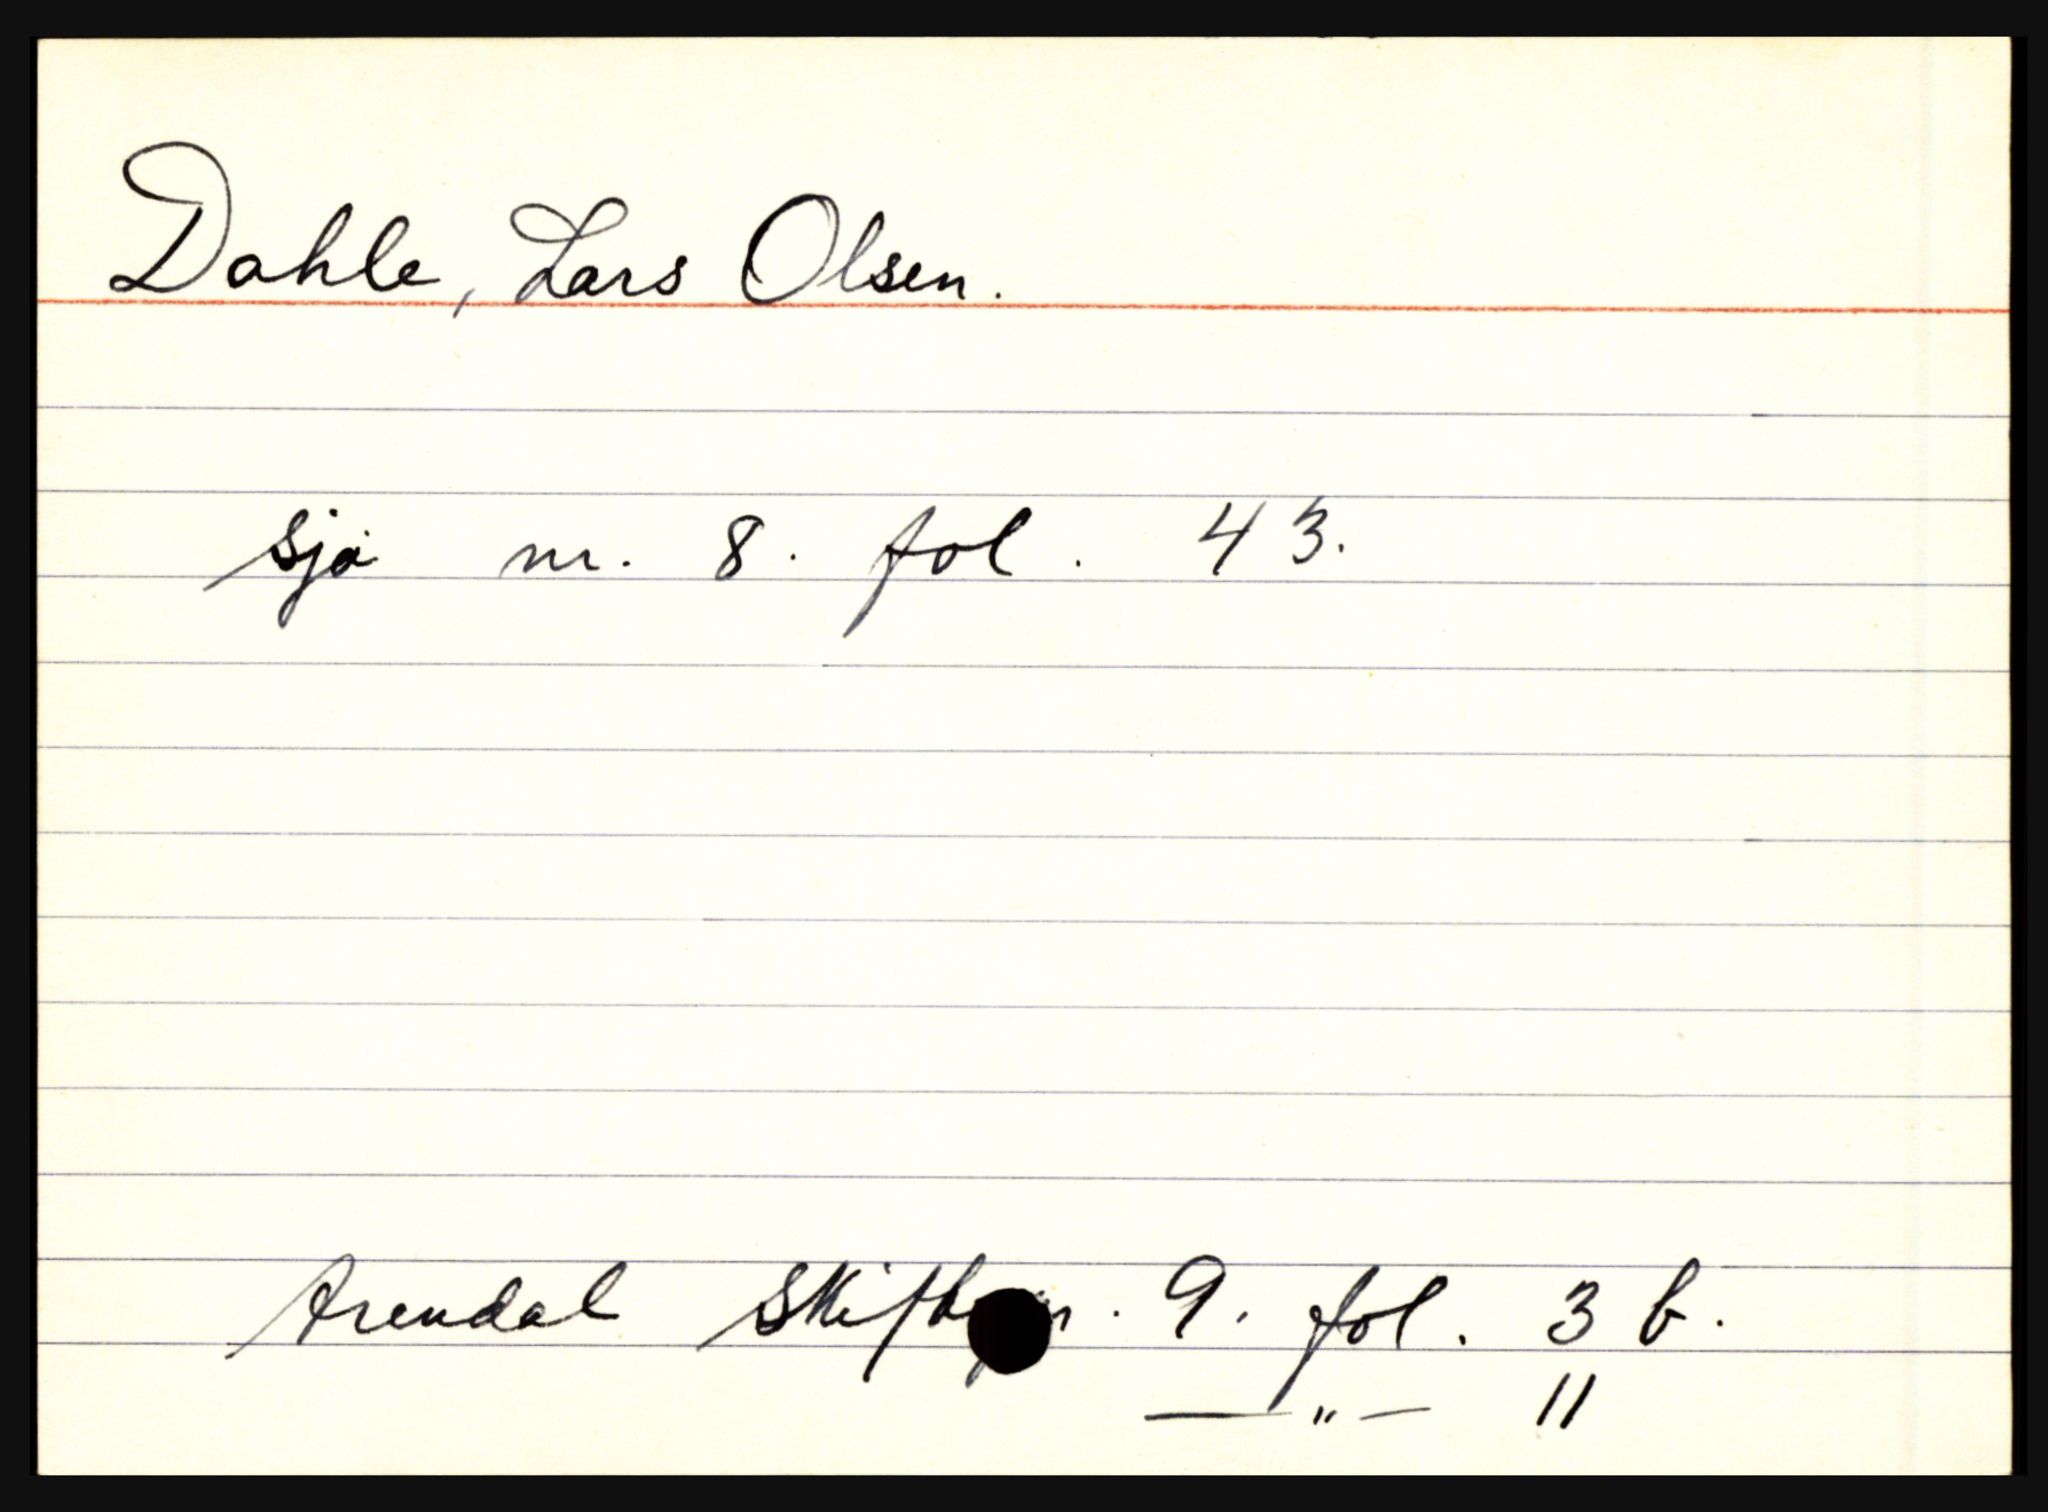 Dahle, Lars Olsen.
sjø nr. 8. fol. 43.
Arendal 9. fol. 3 b.
— " — 11